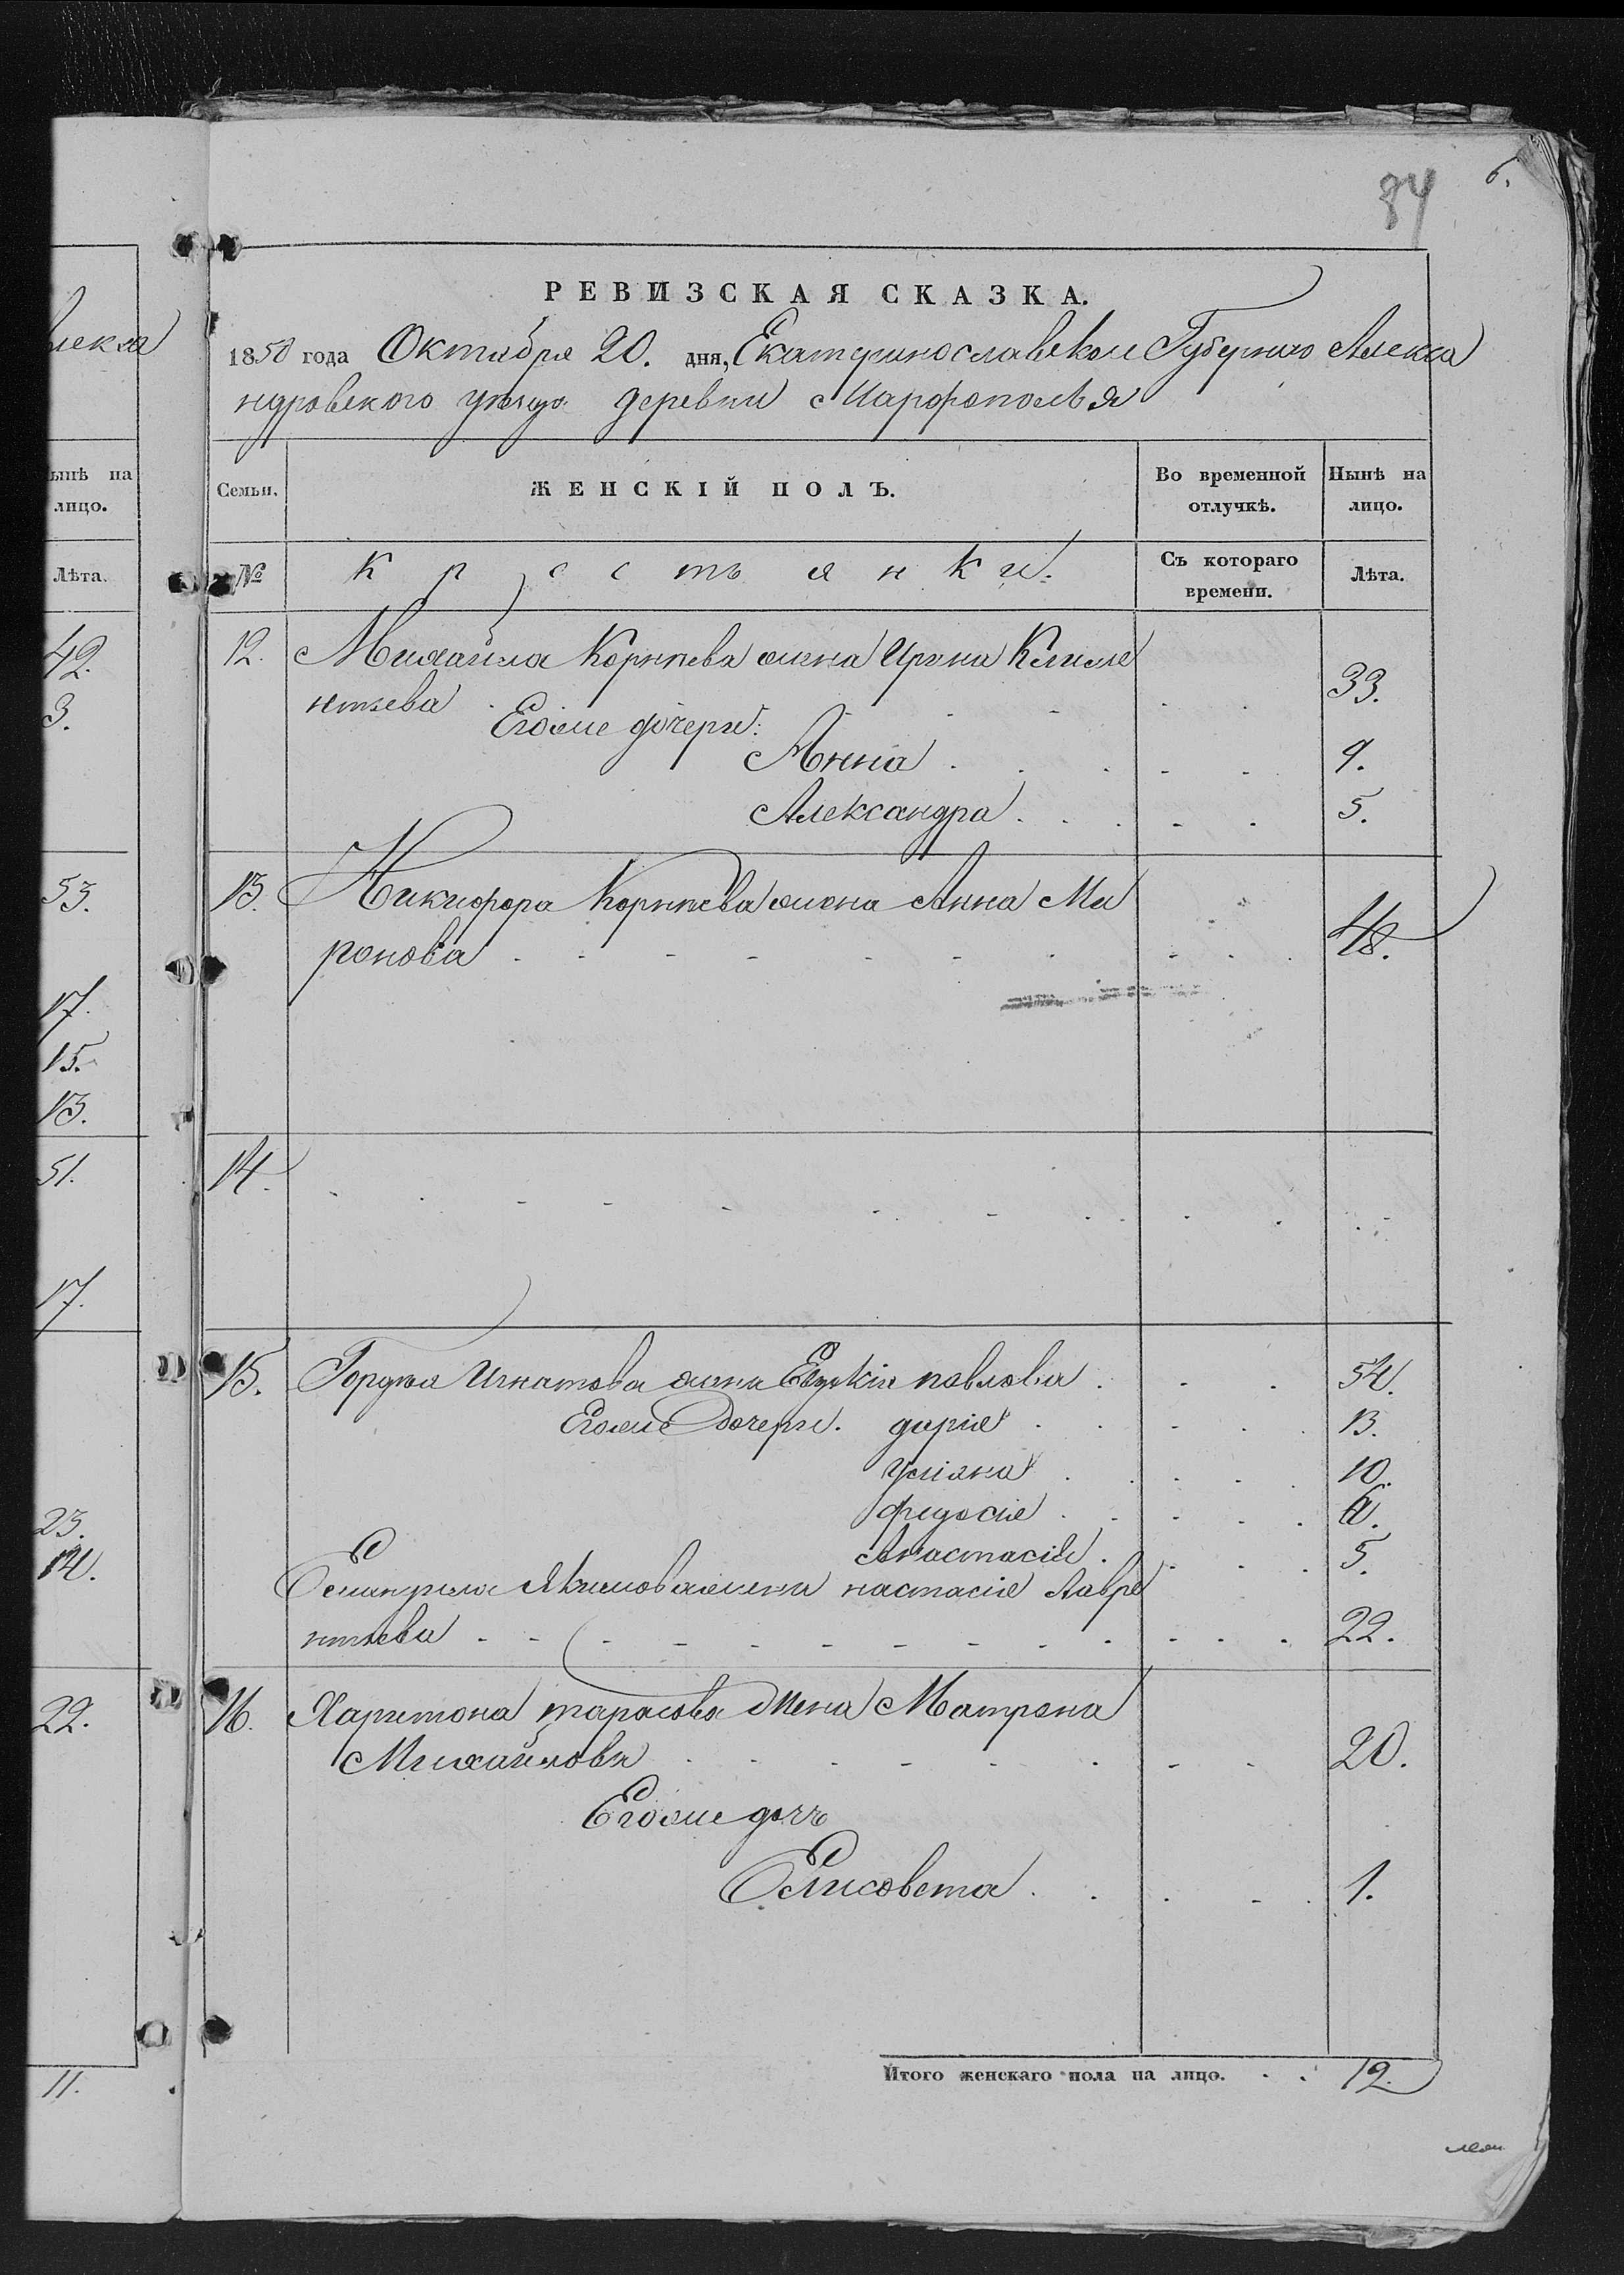 84 6.
РЕВИЗСКАЯ СКАЗКА.
1850 года Октября 20. дня, Екатеринославской Губернии Алекса
ндровского уезда деревни Марфополья
Семьи. ЖЕНСКІЙ ПОЛЪ. Во временной отлучкѣ. Нынѣ на лицо.
№ крестьянки. Съ котораго времени. Лѣта.
12. Михайла Корнѣева жена Ирина Климе
нтьева 33.
Егоже дочери:
Анна 9.
Александра 5.
13. Никифора Корнѣева жена Анна Ми
ронова 48.
14.
15. Гордѣя Игнатова жена Евдокія павлова 54.
Егоже Дочери. дарія 13.
Уліяна 10.
федосія 6.
Анастасія 5.
Якимова жена настасія Лавре
нтьева 22.
16. Харитона тарасова жена Матрона
Михайлова 20.
Егоже дочь
Елисовета 1.
Итого женскаго пола на лицо. 12.
лекса
ынѣ на
лицо.
Лѣта.
42.
3.
53.
17.
15.
13.
51.
17.
23.
14.
22.
11.